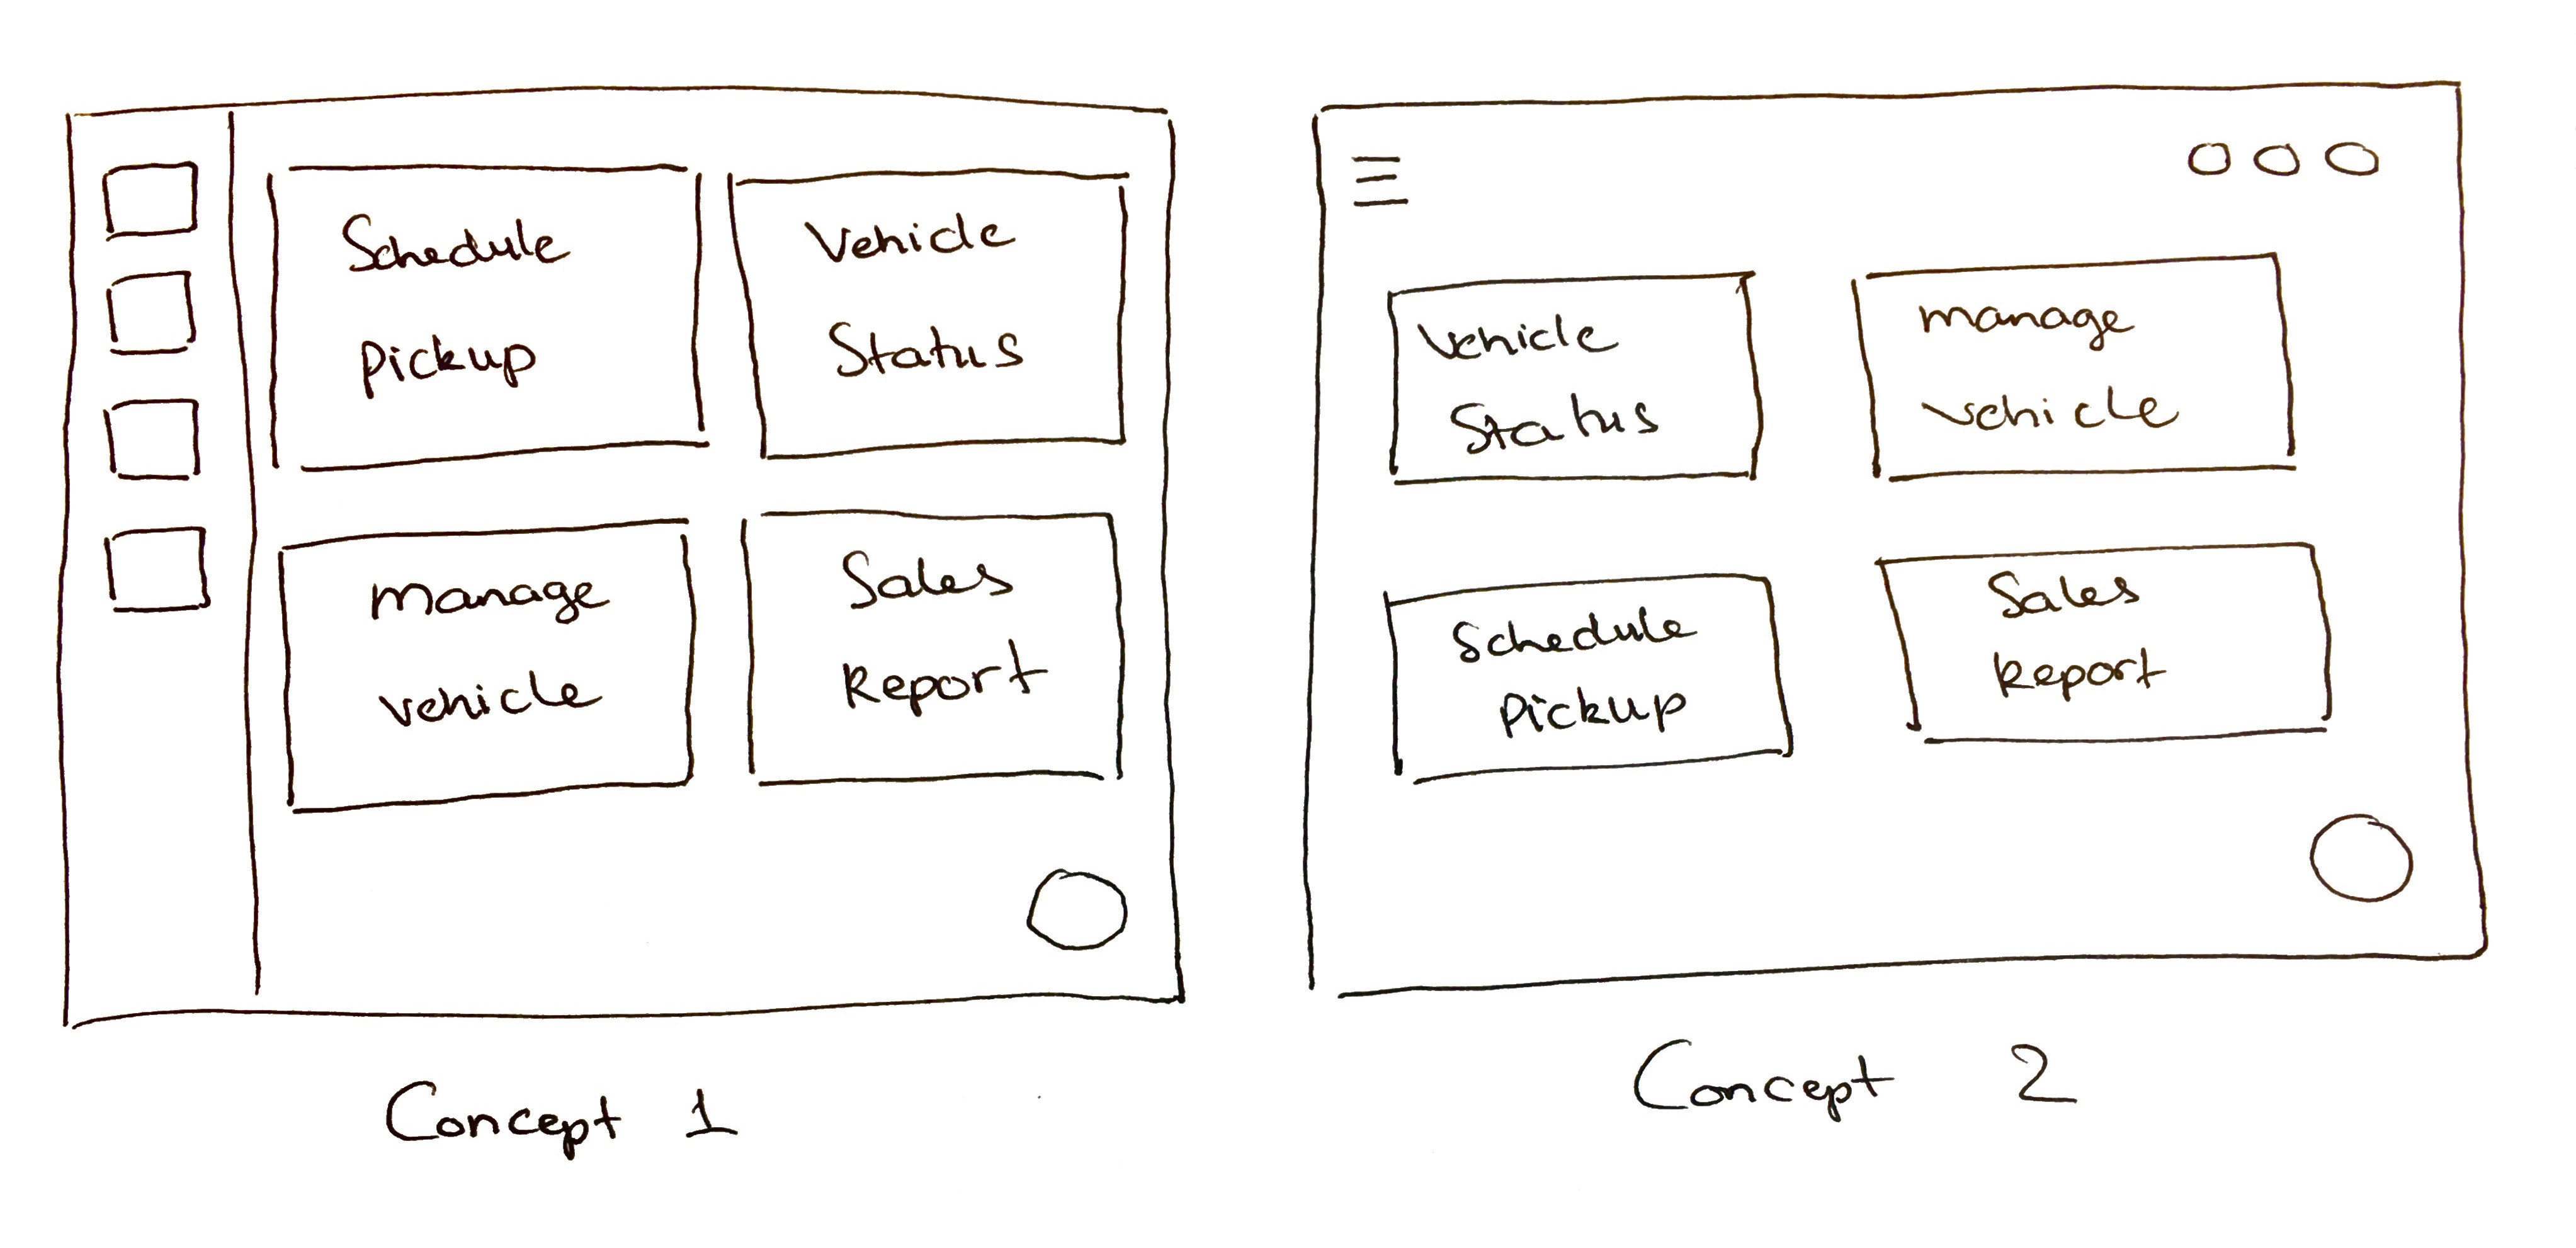 Schedule
Pickup
Vehicle
Status
manage
vehicle
Sales
Report
Concept 1
Vehicle
Status
manage
vehicle
Schedule
Pickup
Sales
Report
Concept 2